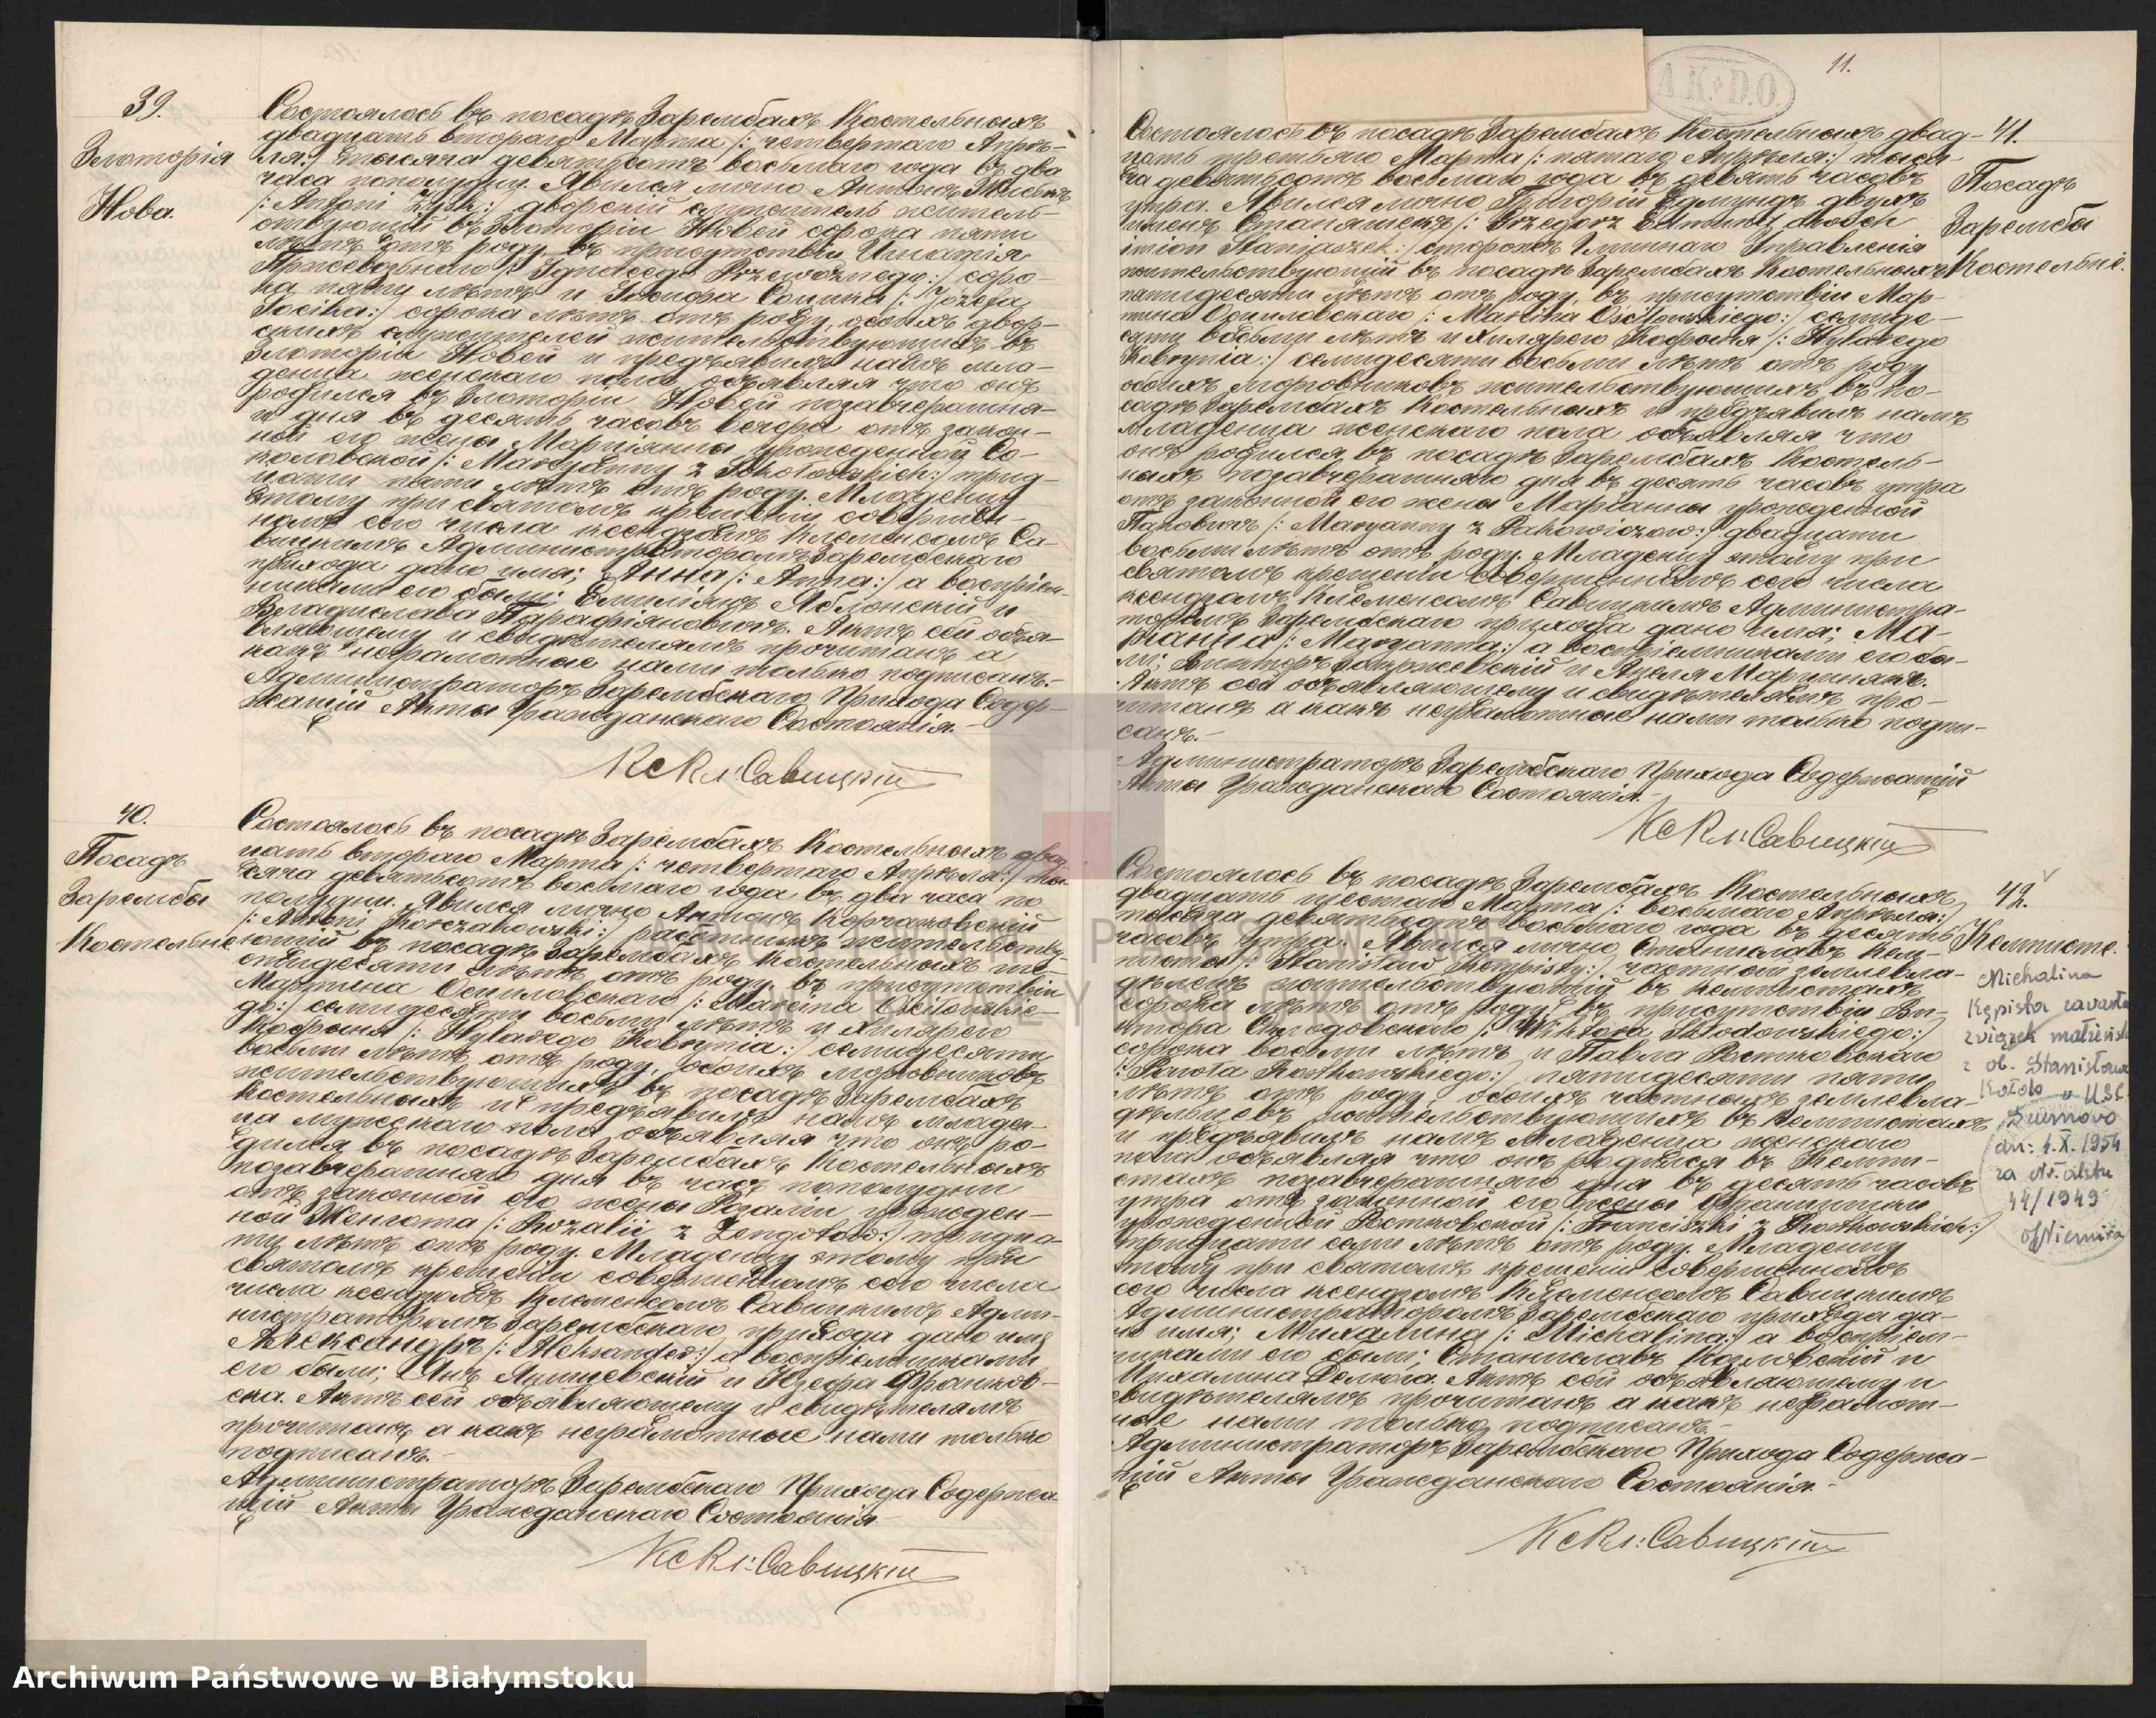 39.
Злоторія
Нова.
Состоялось въ посадѣ Зарембахъ Костельныхъ
двадцать втораго Марта /: четвертаго Апрѣ-
ля:/ тысяча девятьсотъ восьмаго года въ два
часа пополудни. Явился лично Антонъ
/: Antoni :/ дворскій служитель житель-
ствующій въ Злоторіи Новой сорока пяти
лѣтъ отъ роду, въ присутствіи Игнатія
Пржевозьнаго /: Ignacego Przewoźnego:/ соро-
ка пяти лѣтъ и Іосифа Сочика /: Józefa
Socika:/ сорока лѣтъ отъ роду, обоихъ двор-
скихъ служителей жительствующихъ въ
Злоторіи Новой и предъявилъ намъ мла-
денца женскаго пола объявляя что онъ
родился въ Злоторіи Новой позавчерашня-
го дня въ десять часовъ вечера отъ закон-
ной его жены Марціанны урожденной Со-
коловской /: Maryanny z Sokołowskich:/ трид-
цати пяти лѣтъ отъ роду. Младенцу
этому при святомъ крещеніи совершен-
номъ сего числа ксендзомъ Клеменсомъ Са-
вицкимъ Администраторомъ Зарембскаго
прихода дано имя; Анна /: Anna:/ а воспріем-
никами его были; Емиліянъ Яблонскій и
Владислава Парафіяновичъ. Актъ сей объя-
вляющему и свидѣтелямъ прочитанъ а
какъ неграмотные нами только подписанъ.-
Администраторъ Зарембскаго Прихода Содер-
жащій Акты Гражданскаго Состоянія.-
Кс Кл: Савицкій
40.
Посадъ
Зарембы
Костельне
Состоялось въ посадѣ Зарембахъ Костельныхъ двад-
цать втораго Марта /: четвертаго Апрѣля:/ ты-
сяча девятьсотъ восьмаго года въ два часа по
полудни. Явился лично Антонъ Корчаковскій
/: Antoni Korczakowski:/ работникъ жительству-
ющій въ посадѣ Зарембахъ Костельныхъ ше-
стидесяти лѣтъ отъ роду, въ присутствіи
Мартина Осциловскаго /: Marcina Ościłowskie-
go:/ семидесяти восьми лѣтъ и Хилярего
Кобрыня /: Hylarego Kobrynia:/ семидесяти
восьми лѣтъ отъ роду, обоихъ морговниковъ
жительствующихъ въ посадѣ Зарембахъ
Костельныхъ и предъявилъ намъ младен-
ца мужскаго пола объявляя что онъ ро-
дился въ посадѣ Зарембахъ Костельныхъ
позавчерашняго дня въ часъ пополудни
отъ законной его жены Розаліи урожден-
ной Женгота /: Rozalii z Zengotów:/ тридца-
ти лѣтъ отъ роду. Младенцу этому при
святомъ крещеніи совершенномъ сего числа
числа ксендзомъ Клеменсомъ Савицкимъ Адми-
нистраторомъ Зарембскаго прихода дано имя
Александръ /: Aleksander:/ а воспріемниками
его были; Янъ Янишевскій и Юзефа Франков-
ска. Актъ сей объявляющему и свидѣтелямъ
прочитанъ а какъ неграмотные нами только
подписанъ.-
Администраторъ Зарембскаго Прихода Содержа-
щій Акты Гражданскаго Состоянія
Кс Кл: Савицкій
11.
A.K.D.O.
41.
Посадъ
Зарембы
Костельне.
Состоялось въ посадѣ Зарембахъ Костельныхъ двад-
цать третьяго Марта /: пятаго Апрѣля:/ тыся-
ча девятьсотъ восьмаго года въ девять часовъ
утра. Явился лично Григорій Едмундъ двухъ
именъ Станяшекъ /: Grzegorz Edmund dwóch
imion Staniaszek:/ сторожъ Гминнаго Управленія
жительствующій въ посадѣ Зарембахъ Костельныхъ
пятидесяти лѣтъ отъ роду, въ присутствіи Мар-
тина Осциловскаго /: Marcina Ościłowskiego:/ семиде-
сяти восьми лѣтъ и Хилярего Кобрыня /: Hylarego
Kobrynia:/ семидесяти восьми лѣтъ отъ роду
обоихъ морговниковъ жительствующихъ въ по-
садѣ Зарембахъ Костельныхъ и предъявилъ намъ
младенца женскаго пола объявляя что
онъ родился въ посадѣ Зарембахъ Костель-
ныхъ позавчерашняго дня въ десять часовъ утра
отъ законной его жены Маріанны урожденной
Паковичъ /: Maryanny z Pakowiczów:/ двадцати
восьми лѣтъ отъ роду. Младенцу этому при
святомъ крещеніи совершенномъ сего числа
ксендзомъ Клеменсомъ Савицкимъ Администра-
торомъ Зарембскаго прихода дано имя; Ма-
ріанна /: Maryanna:/ а воспріемниками его бы-
ли; Викторъ Закржевскій и Анеля Марцинякъ.
Актъ сей объявляющему и свидѣтелямъ про-
читанъ а какъ неграмотные нами только подпи-
санъ.-
Администраторъ Зарембскаго Прихода Содержащій
Акты Гражданскаго Состоянія.-
Кс Кл: Савицкій
42.
Кемписте.
Состоялось въ посадѣ Зарембахъ Костельныхъ
двадцать шестаго Марта /: восьмаго Апрѣля:/
тысяча девятьсотъ восьмаго года въ десять
часовъ утра. Явился лично Станиславъ Кем-
писты /: Stanisław Kempisty:/ частный землевла-
дѣлецъ жительствующій въ Кемпистахъ
сорока лѣтъ отъ роду, въ присутствіи Ви-
ктора Склодовскаго /: Wiktora Skłodowskiego:/
сорока восьми лѣтъ и Павла Ростковскаго
/: Pawła Rostkowskiego:/ пятидесяти пяти
лѣтъ отъ роду, обоихъ частныхъ землевла-
дѣльцевъ жительствующихъ въ Кемпистахъ
и предъявилъ намъ младенца женскаго
пола объявляя что онъ родился въ Кемпи-
стахъ позавчерашняго дня въ десять часовъ
утра отъ законной его жены Францишки
урожденной Ростковской /: Franciszki z Rostkowskich:/
тридцати семи лѣтъ отъ роду. Младенцу
этому при святомъ крещеніи совершенномъ
сего числа ксендзомъ Клеменсомъ Савицкимъ
Администраторомъ Зарембскаго прихода да-
но имя; Михалина /: Michalina:/ а воспріем-
никами его были; Станиславъ Козловскій и
Михалина Делюга. Актъ сей объявляющему и
свидѣтелямъ прочитанъ а какъ неграмот-
ные нами только подписанъ.-
Администраторъ Зарембскаго Прихода Содержа-
щій Акты Гражданскаго Состоянія.-
Кс Кл: Савицкій
Michalina
Kępista zawarła
związek małżeński
z ob. Stanisławem
w USC
dn: 4.X.1954
za Nr. aktu
44/1949
ARCHIWUM PAŃSTWOWE
W BIAŁYMSTOKU
Archiwum Państwowe w Białymstoku